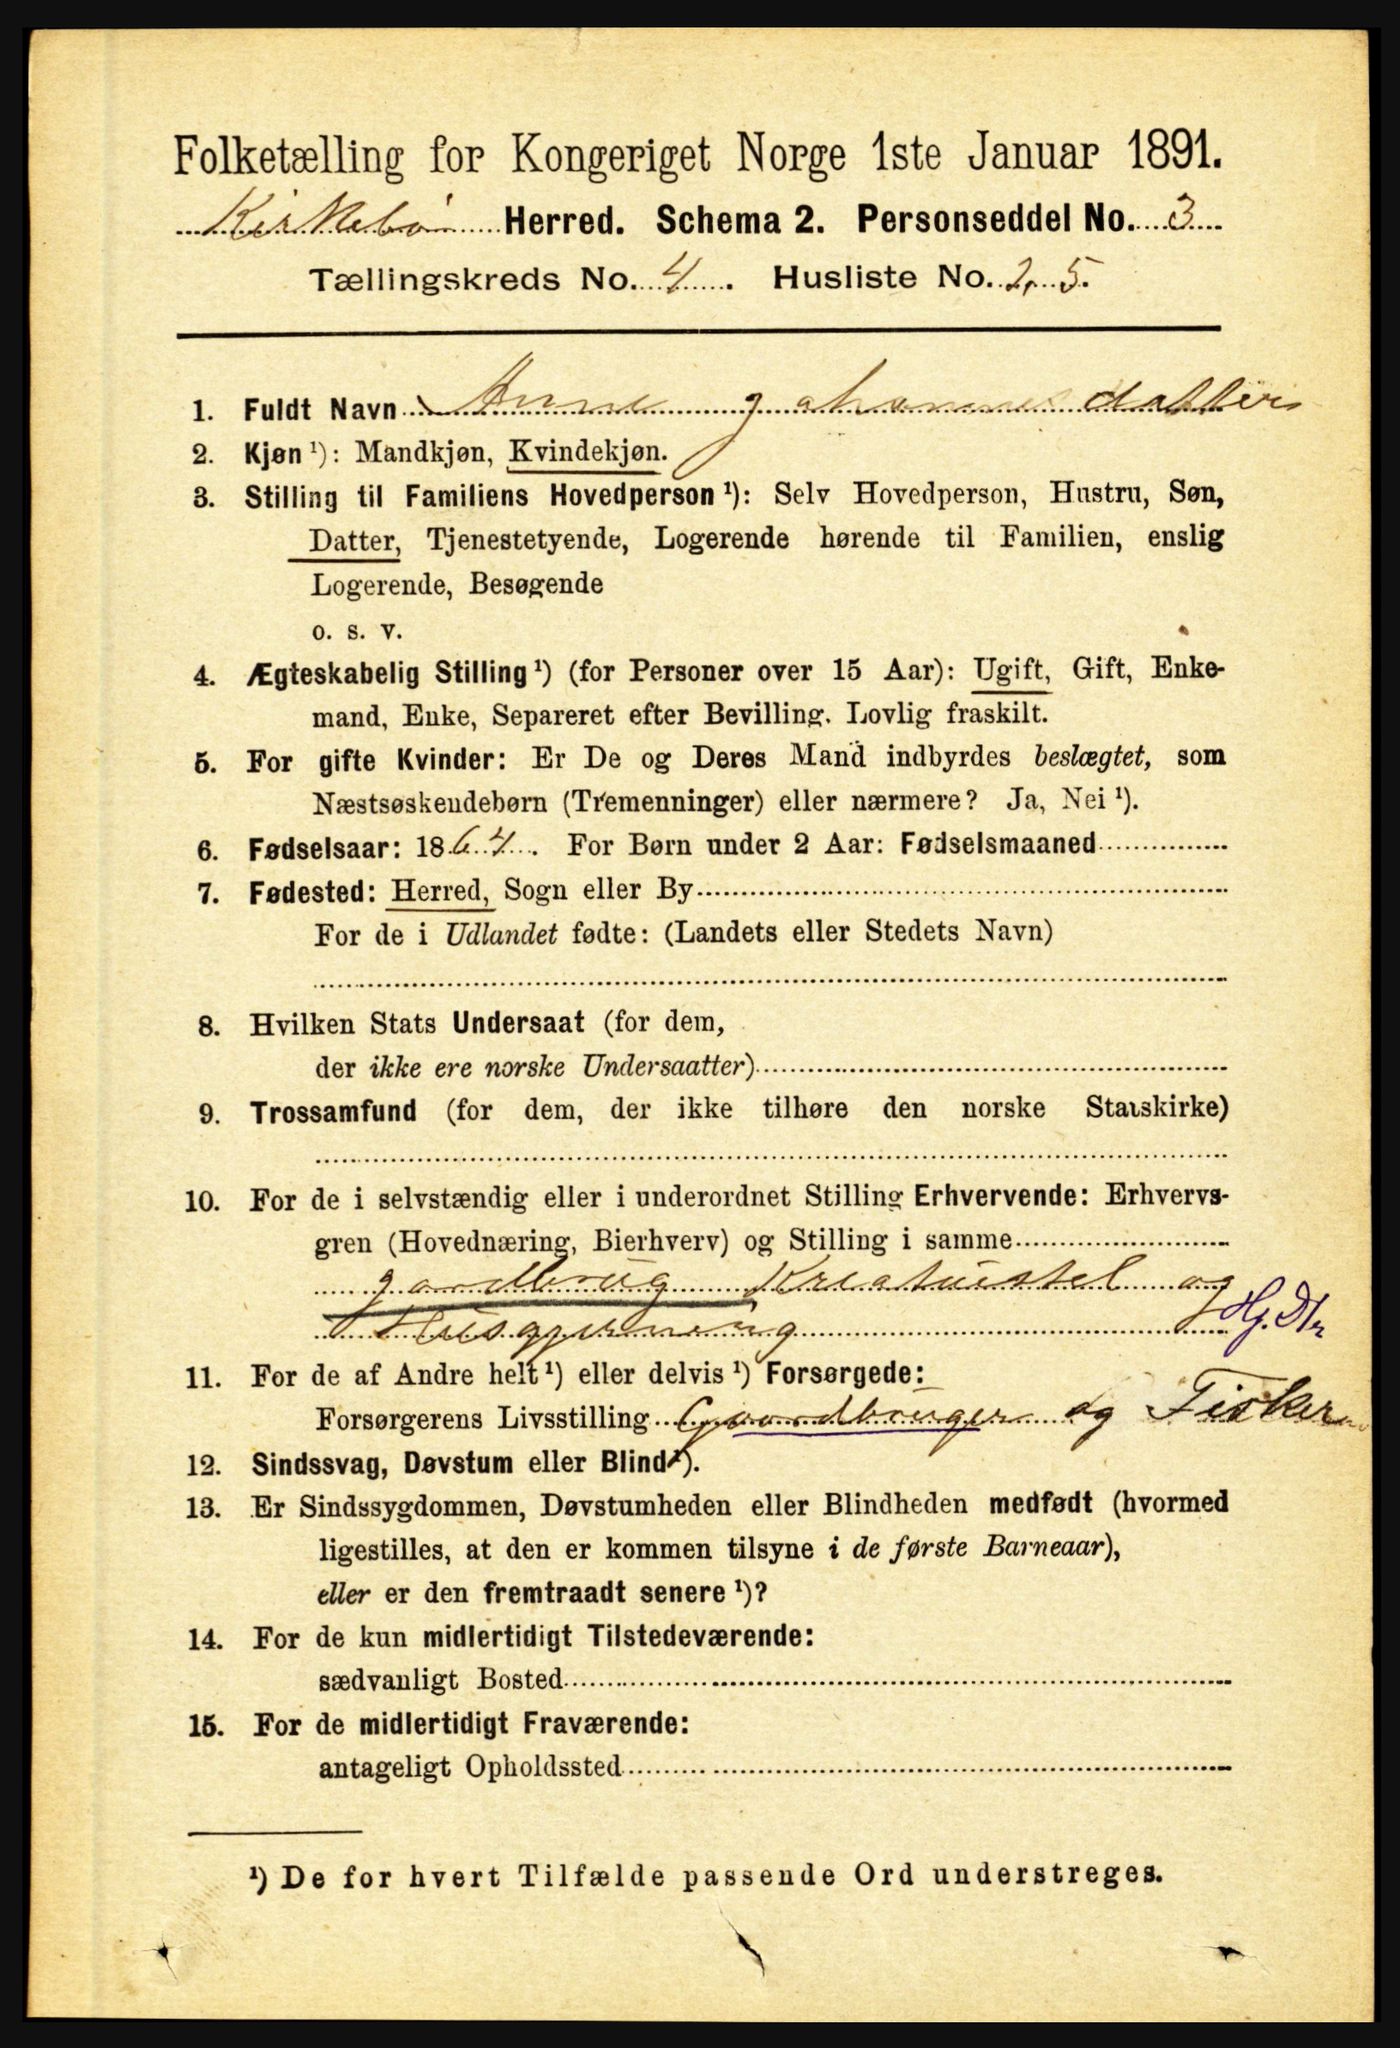 Folketælling for Kongeriget Norge 1ste Januar 1891.
Kirkebø Herred. Schema 2. Personseddel No. 3
Tællingskreds No. 4. Husliste No. 25.
1. Fuldt Navn Anne Johannesdatter
2. Kjøn ¹): Mandkjøn, Kvindekjøn.
3. Stilling til Familiens Hovedperson ¹): Selv Hovedperson, Hustru, Søn,
Datter, Tjenestetyende, Logerende hørende til Familien, enslig
Logerende, Besøgende
o. s. v.
4. Ægteskabelig Stilling ¹) (for Personer over 15 Aar): Ugift, Gift, Enke-
mand, Enke, Separeret efter Bevilling. Lovlig fraskilt.
5. For gifte Kvinder: Er De og Deres Mand indbyrdes beslægtet, som
Næstsøskendebørn (Tremenninger) eller nærmere? Ja, Nei ¹).
6. Fødselsaar: 1864. For Børn under 2 Aar: Fødselsmaaned
7. Fødested: Herred, Sogn eller By
For de i Udlandet fødte: (Landets eller Stedets Navn)
8. Hvilken Stats Undersaat (for dem,
der ikke ere norske Undersaatter)
9. Trossamfund (for dem, der ikke tilhøre den norske Statskirke)
10. For de i selvstændig eller i underordnet Stilling Erhvervende: Erhvervs-
gren (Hovednæring, Bierhverv) og Stilling i samme
gaardbrug Kreaturstel og
Husgjerning Hj. Dtr
11. For de af Andre helt ¹) eller delvis ¹) Forsørgede:
Forsørgerens Livsstilling Gaardbruger og Fisker
12. Sindssvag, Døvstum eller Blind ¹).
13. Er Sindssygdommen, Døvstumheden eller Blindheden medfødt (hvormed
ligestilles, at den er kommen tilsyne i de første Barneaar),
eller er den fremtraadt senere ¹)?
14. For de kun midlertidigt Tilstedeværende:
sædvanligt Bosted
15. For de midlertidigt Fraværende:
antageligt Opholdssted
¹) De for hvert Tilfælde passende Ord understreges.